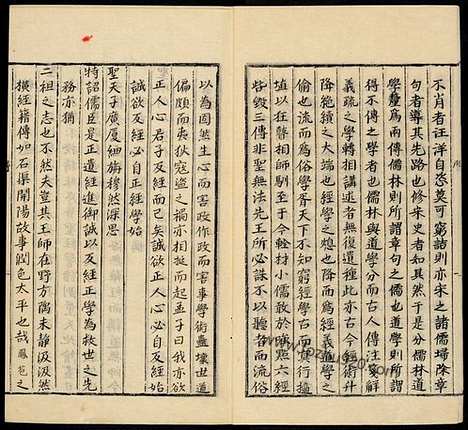 不肖者汪洋自恣莫可窮詰則亦宋之諸儒掃除章
句者導其先路也修宋史者知其然于是分儒林道
學釐為兩傳儒林則所謂章句之儒也道學則所謂
得不傳之學者也儒林與道學分而古人傳注箋解
義疏之學轉相講述者無復遺種此亦古今經術升
降絕續之大端也經學之熄也降而為經義道學之
偷也流而為俗學胥天下不知窮經學古而冥行擿
埴以狂瞽相師馴至于今輇材小儒敢於嗤點六經
呰毀三傳非聖無法先王所必誅不以聽者而流俗
以為固然生心而害政作政而害事學術蠱壞世道
偏頗而夷狄寇盜之禍亦相挺而起孟子曰我亦欲
正人心君子反經而已矣誠欲正人心必自反經始
誠欲反經必自正經學始
聖天子廣厦細旃穆然深思
特詔儒臣是正遺經進御誠以反經正學為救世之先
務亦猶
二祖之志也不然夫豈其王師在野方隅未靜汲汲然
橫經籍傳如石渠開陽故事潤色太平也哉鳳苞之